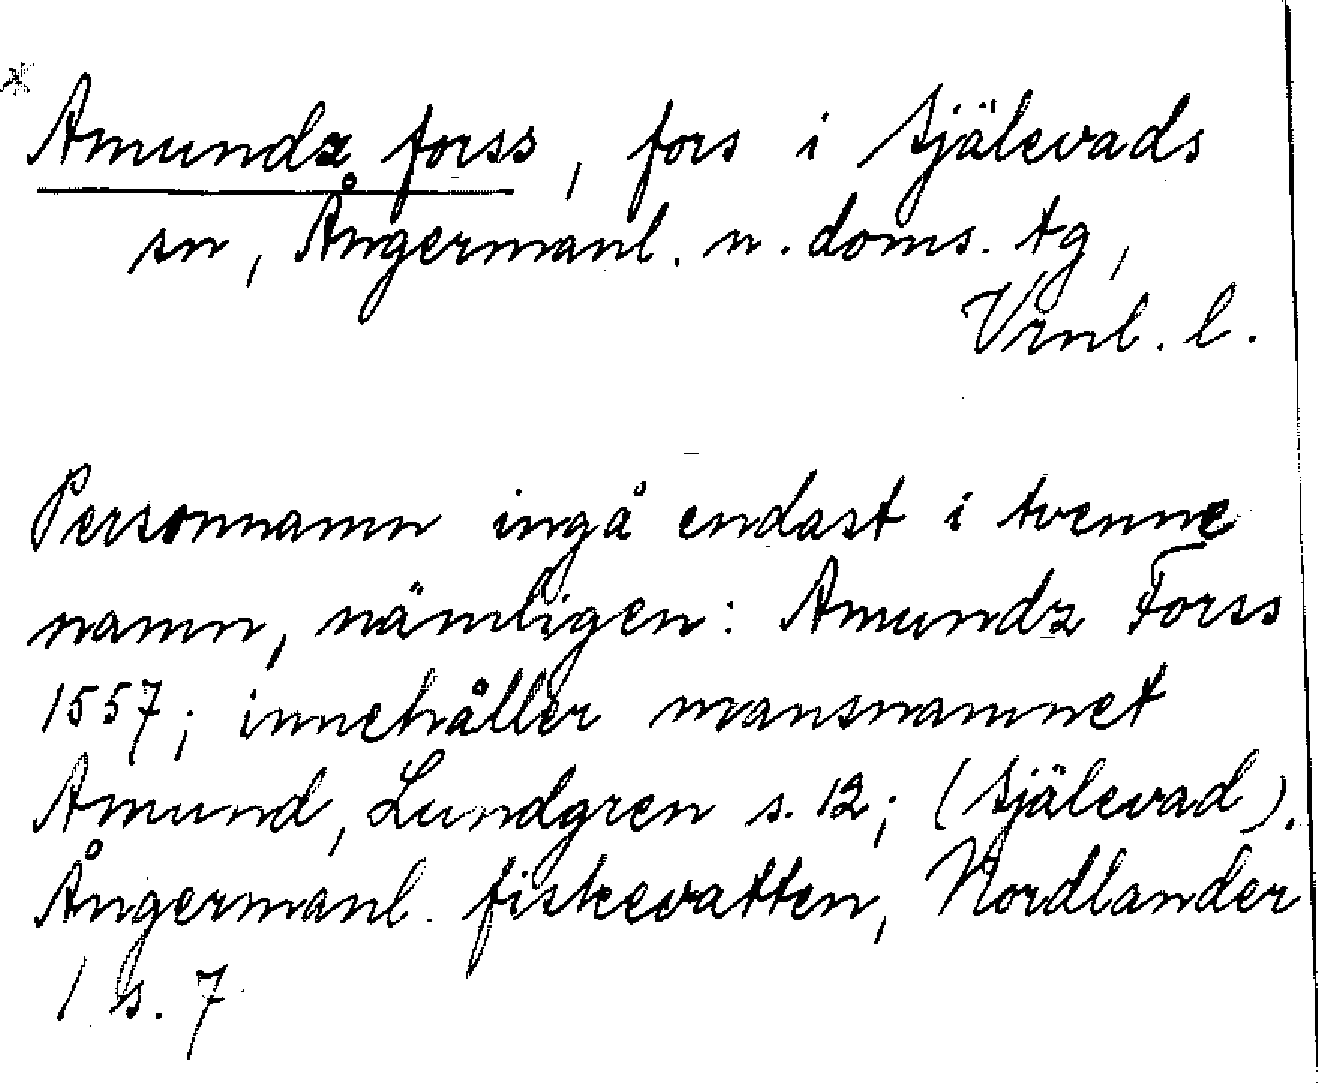 Amundz forss, fors i Själevads
sn, Ångermanl. n. doms. tg,
Vrnl. l.
Personnamn ingå endast i tvenne
namn, nämligen: Amundz Forss
1557; innehåller mansnamnet
Amund, Lundgren s. 12; (Själevad).
Ångermanl. fiskevatten, Nordlander
1 s. 7